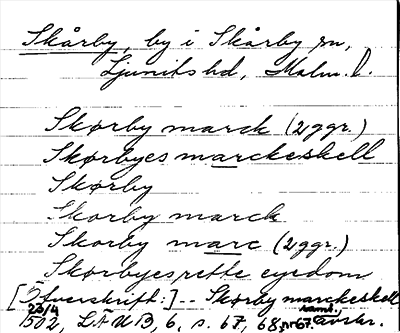 Skårby, by i Skårby sn,
Ljunits hd, Malm. l.
Skørby marck (2 ggr.)
Skørbyes marckeskell
Skørby
Skorby marck
Skorby marc (2 ggr.)
Skørbyes rette eyedom
[Överskrift:] -- Skørby marckeskell
23/4 1502, LÄUB, 6, s. 67, 68, nr 67. samt.